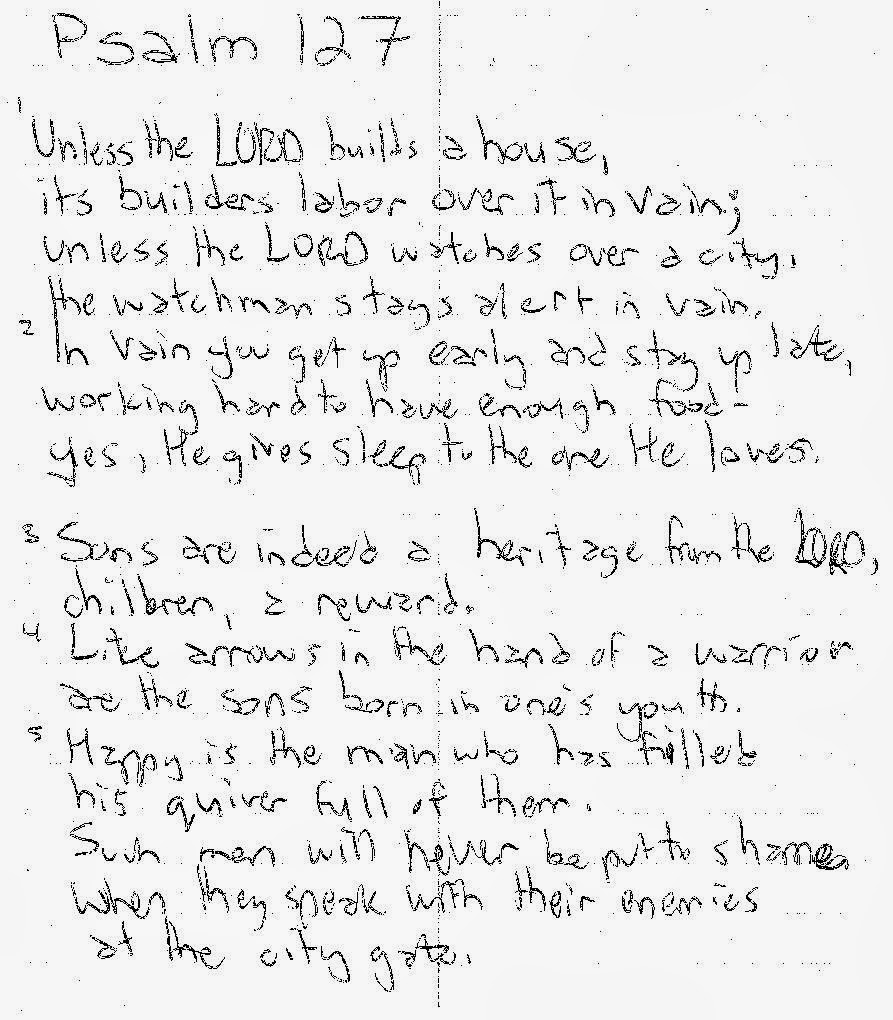 Psalm 127
1
Unless the LORD builds a house,
its builders labor over it in vain;
unless the LORD watches over a city,
the watchman stays alert in vain.
2 In vain you get up early and stay up late,
working hard to have enough food-
yes, He gives sleep to the one He loves.
3 Sons are indeed a heritage from the LORD,
children, a reward.
4 Like arrows in the hand of a warrior
are the sons born in one's youth.
5 Happy is the man who has filled
his quiver full of them.
Such men will never be put to shame
when they speak with their enemies
at the city gate.